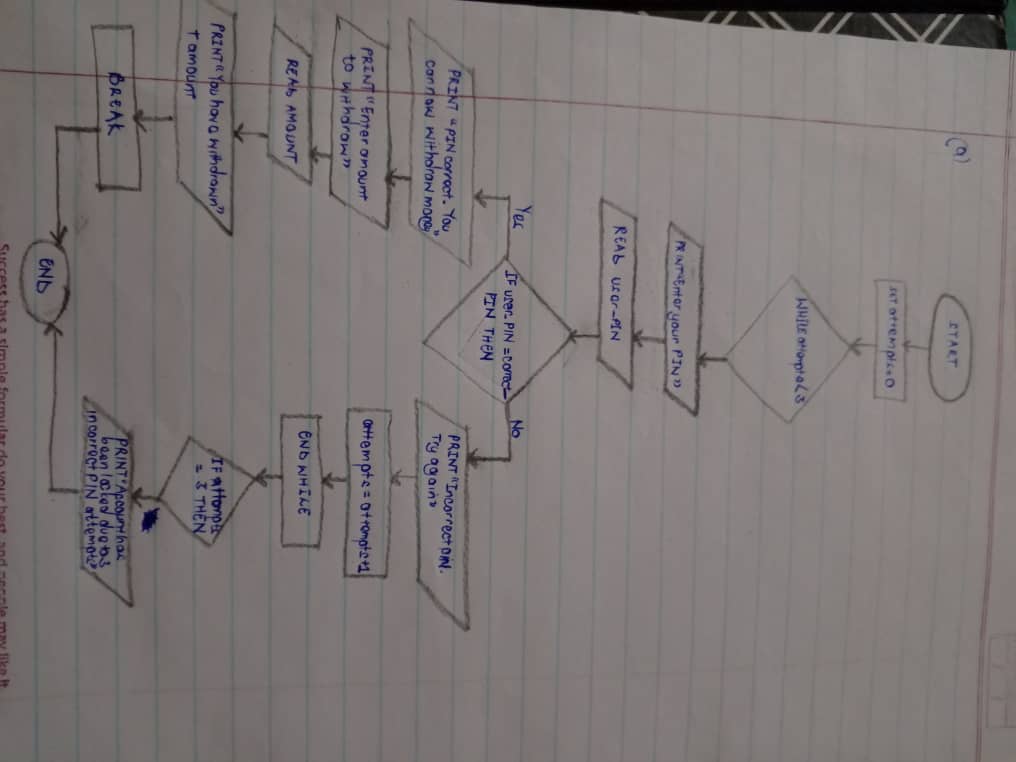 (a)
START
SET attempts=0
WHILE attempts<3
PRINT "Enter your PIN"
READ user-PIN
IF user-PIN = correct-
PIN THEN
Yes
No
PRINT "PIN correct. You
can now withdraw money"
PRINT "Enter amount
to withdraw"
READ AMOUNT
PRINT "You have withdrawn"
+ amount
BREAK
PRINT "Incorrect PIN.
Try again"
attempts = attempts+1
END WHILE
IF attempts
= 3 THEN
PRINT "Account has
been locked due to 3
incorrect PIN attempts"
END
Success has a simple formular do your best, and people may like it